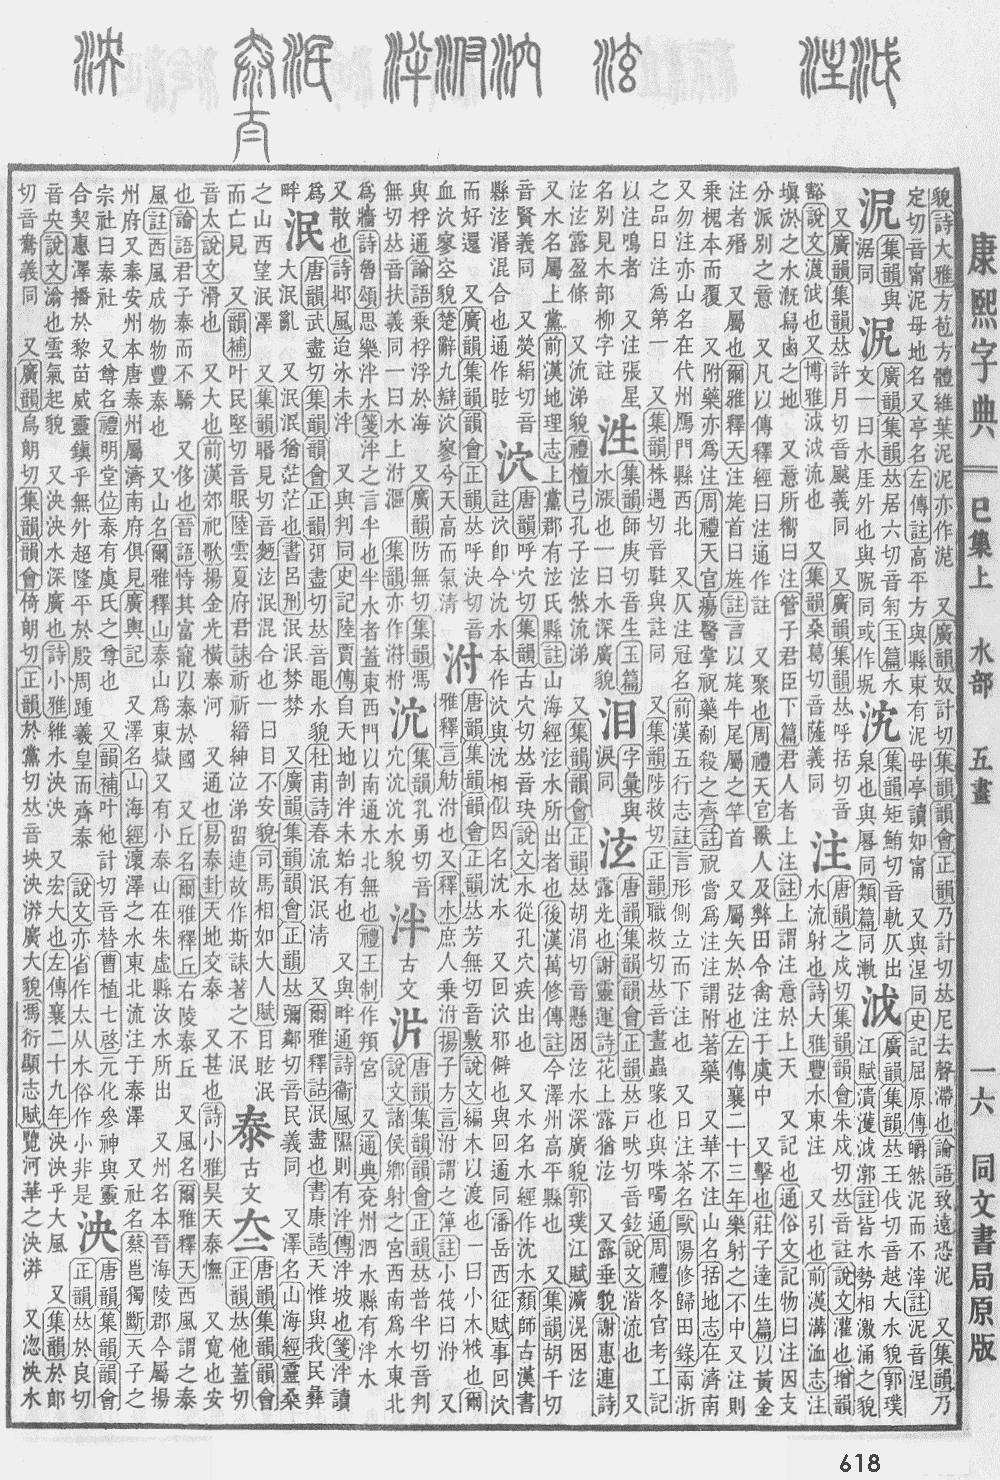 康熙字典 巳集上 水部 五畫 一六 同文書局原版
貌詩大雅方苞方體維葉泥泥亦作泥 又廣韻奴計切集韻韻會正韻乃計切𠀤尼去聲滯也論語致遠恐泥 又集韻乃
定切音甯泥母地名又亭名左傳註高平方與縣東有泥母亭讀如甯 又與涅同史記屈原傳皭然泥而不滓註泥音涅
集韻與
涺同
廣韻集韻𠀤居六切音匊玉篇水
文一曰水厓外也與阮同或作坭
集韻矩鮪切音軌仄出
泉也與厬同類篇同漸
泧
廣韻集韻𠀤王伐切音越大水貌郭璞
江賦瀇濩泧漷註皆水勢相激洶涌之貌
又廣韻集韻𠀤許月切音颰義同 又廣韻集韻𠀤呼括切音
豁說文瀎泧也又博雅泧泧流也 又集韻桑葛切音薩義同
注
唐韻之戍切集韻韻會朱戍切𠀤音註說文灌也增韻
水流射也詩大雅豐水東注 又引也前漢溝洫志注
塡淤之水漑舄鹵之地 又意所嚮曰注管子君臣下篇君人者上注註上謂注意於上天 又記也通俗文記物曰注因支
分派別之意 又凡以傳釋經曰注通作註 又聚也周禮天官獸人及弊田令禽注于虞中 又擊也莊子達生篇以黃金
注者殙 又屬也爾雅釋天注旄首曰旌註言以旄牛尾屬之竿首 又屬矢於弦也左傳襄二十三年樂射之不中又注則
乗槐本而覆 又附藥亦爲注周禮天官瘍醫掌祝藥劀殺之齊註祝當爲注注謂附著藥 又華不注山名括地志在濟南
又勿注亦山名在代州鴈門縣西北 又仄注冠名前漢五行志註言形側立而下注也 又日注茶名歐陽修歸田錄兩浙
之品日注爲第一 又集韻株遇切音駐與註同 又集韻陟救切正韻職救切𠀤音晝蟲喙也與咮噣通周禮冬官考工記
以注鳴者 又注張星
名別見木部柳字註
泩
集韻師庚切音生玉篇
水漲也一曰水深廣貌
泪
字彙與
淚同
泫
唐韻集韻韻會正韻𠀤戸畎切音鉉說文湝流也 又
露光也謝靈運詩花上露猶泫 又露垂貌謝惠連詩
泫泫露盈條 又流涕貌禮檀弓孔子泫然流涕 又集韻韻會正韻𠀤胡涓切音懸困泫水深廣貌郭璞江賦瀇滉困泫
又水名屬上黨前漢地理志上黨郡有泫氏縣註山海經泫水所出者也後漢萬修傳註今澤州高平縣也 又集韻胡千切
音賢義同 又熒絹切音
縣泫潛混合也通作眩
泬
唐韻呼穴切集韻古穴切𠀤音玦說文水從孔穴疾出也 又水名水經作沈水顏師古漢書
註泬卽今沈水本作泬與沈相似因名沈水 又回泬邪僻也與回遹同潘岳西征賦事回泬
而好還 又廣韻集韻韻會正韻𠀤呼決切音
血泬寥空貌楚辭九辯泬寥兮天高而氣淸
泭
唐韻集韻韻會正韻𠀤芳無切音敷說文編木以渡也一曰小木栰也爾
雅釋言舫泭也又釋水庶人乗泭揚子方言泭謂之箄註小筏曰泭 又
與桴通論語乗桴浮於海 又廣韻防無切集韻馮
無切𠀤音扶義同一曰水上泭漚 集韻亦作洀柎
集韻孔勇切音
沉沉水貌
泮
古文
唐韻集韻韻會正韻𠀤普半切音判
說文諸侯鄉射之宮西南爲水東北
爲牆詩魯頌思樂泮水箋泮之言半也半水者蓋東西門以南通水北無也禮王制作頖宮 又通典兗州泗水縣有泮水
又散也詩邶風迨氷未泮 又與判同史記陸賈傳自天地剖泮未始有也 又與畔通詩衞風隰則有泮傳泮坡也箋泮讀
爲
畔
泯
唐韻武盡切集韻韻會正韻弭盡切𠀤音黽水貌杜甫詩春流泯泯淸 又爾雅釋詁泯盡也書康誥天惟與我民彝
大泯亂 又泯泯猶茫茫也書呂刑泯泯棼棼 又廣韻集韻韻會正韻𠀤彌鄰切音民義同 又澤名山海經靈桑
之山西望泯澤 又集韻䁕見切音麪泫泯混合也一曰目不安貌司馬相如大人賦目眩泯
而亡見 又韻補叶民堅切音眠陸雲夏府君誄祈祈縉紳泣涕留連故作斯誄著之不泯
泰
古文
唐韻集韻韻會
正韻𠀤他蓋切
音太說文滑也 又大也前漢郊祀歌揚金光橫泰河 又通也易泰卦天地交泰 又甚也詩小雅昊天泰憮 又寬也安
也論語君子泰而不驕 又侈也晉語恃其富寵以泰於國 又丘名爾雅釋丘右陵泰丘 又風名爾雅釋天西風謂之泰
風註西風成物物豐泰也 又山名爾雅釋山泰山爲東嶽又有小泰山在朱虛縣汶水所出 又州名本晉海陵郡今屬揚
州府又泰安州本唐泰州屬濟南府俱見廣輿記 又澤名山海經瀤澤之水東北流注于泰澤 又社名蔡邕獨斷天子之
宗社曰泰社 又尊名禮明堂位泰有虞氏之尊也 又韻補叶他計切音替曹植七啓元化參神與靈
合契惠澤播於黎苗威靈鎭乎無外超隆平於殷周踵羲皇而齊泰 說文亦省作太从水俗作小非是
泱
唐韻集韻韻會
正韻𠀤於良切
音央說文滃也雲氣起貌 又泱泱水深廣也詩小雅維水泱泱 又宏大也左傳襄二十九年泱泱乎大風 又集韻於郎
切音鴦義同 又廣韻烏朗切集韻韻會倚朗切正韻於黨切𠀤音坱泱漭廣大貌馮衍顯志賦覽河華之泱漭 又滃泱水
618